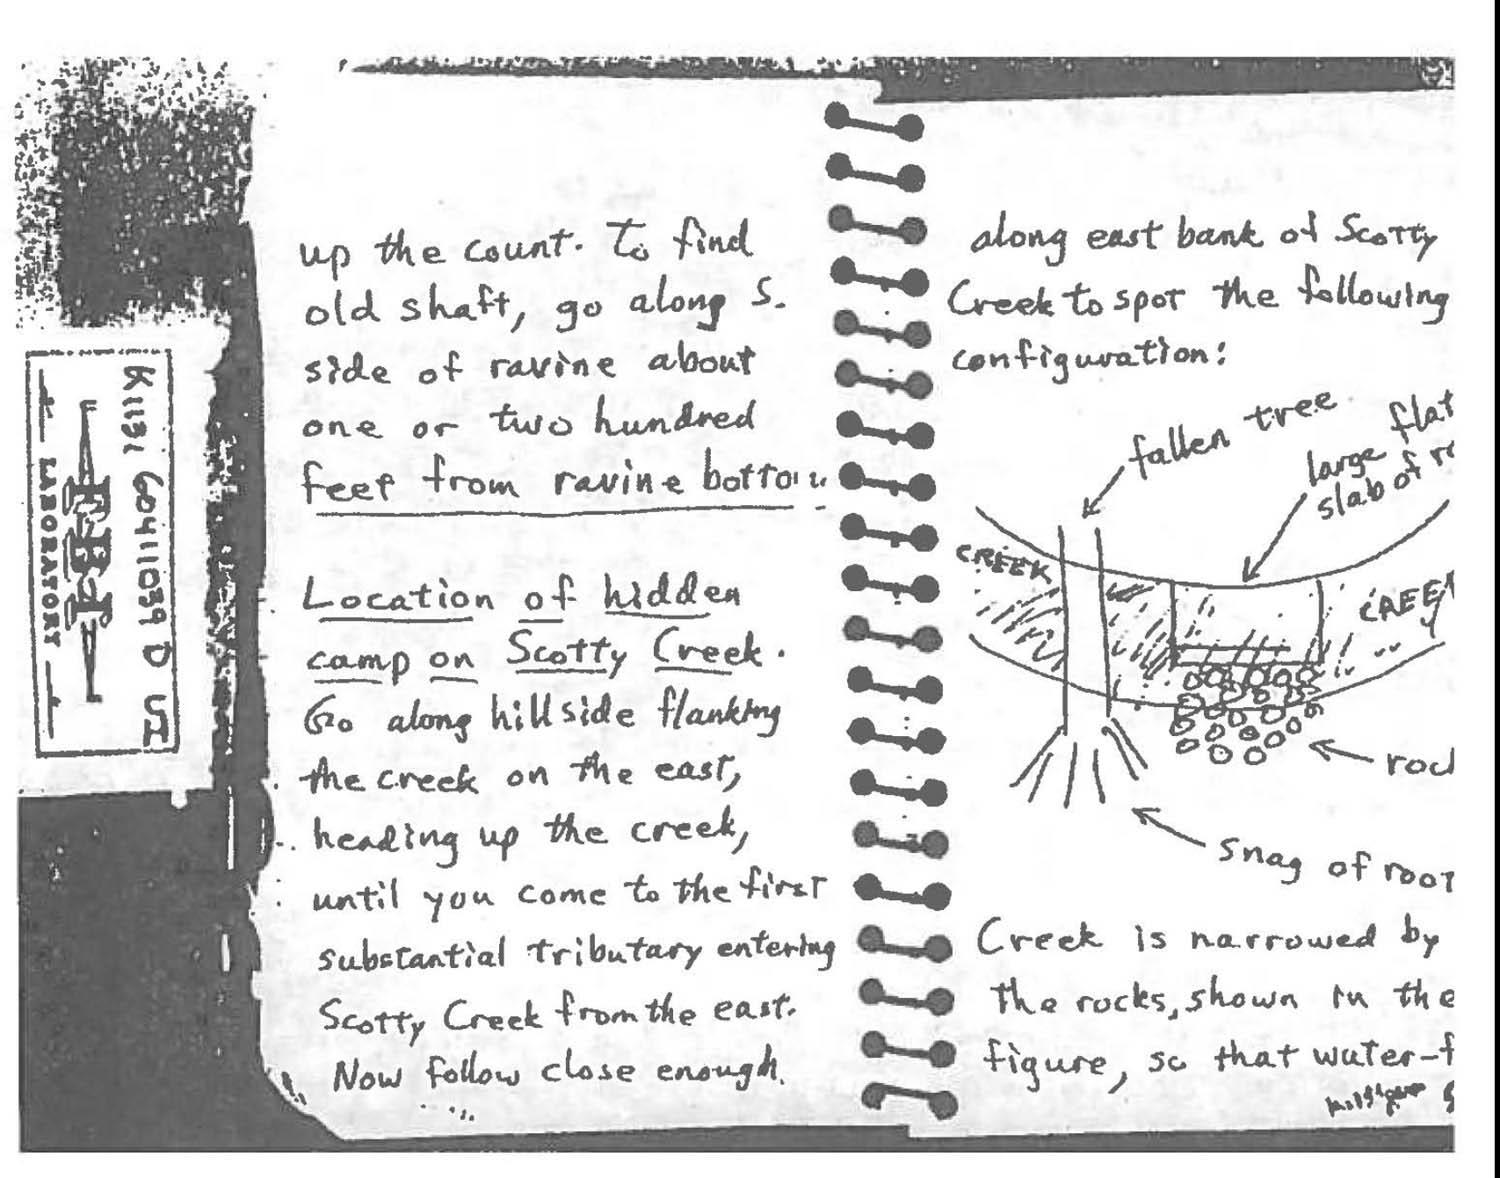 up the count. To find
old shaft, go along S.
side of ravine about
one or two hundred
feet from ravine bottom
Location of hidden
camp on Scotty Creek.
Go along hillside flanking
the creek on the east,
heading up the creek,
until you come to the first
substantial tributary entering
Scotty Creek from the east.
Now follow close enough
along east bank of Scotty
Creek to spot the following
configuration:
fallen tree
large flat
slab of
CREEK
CREE
roc
snag of root
Creek is narrowed by
the rocks, shown in the
figure, so that water-f
K1131 60411039 D UI
FBI
LABORATORY